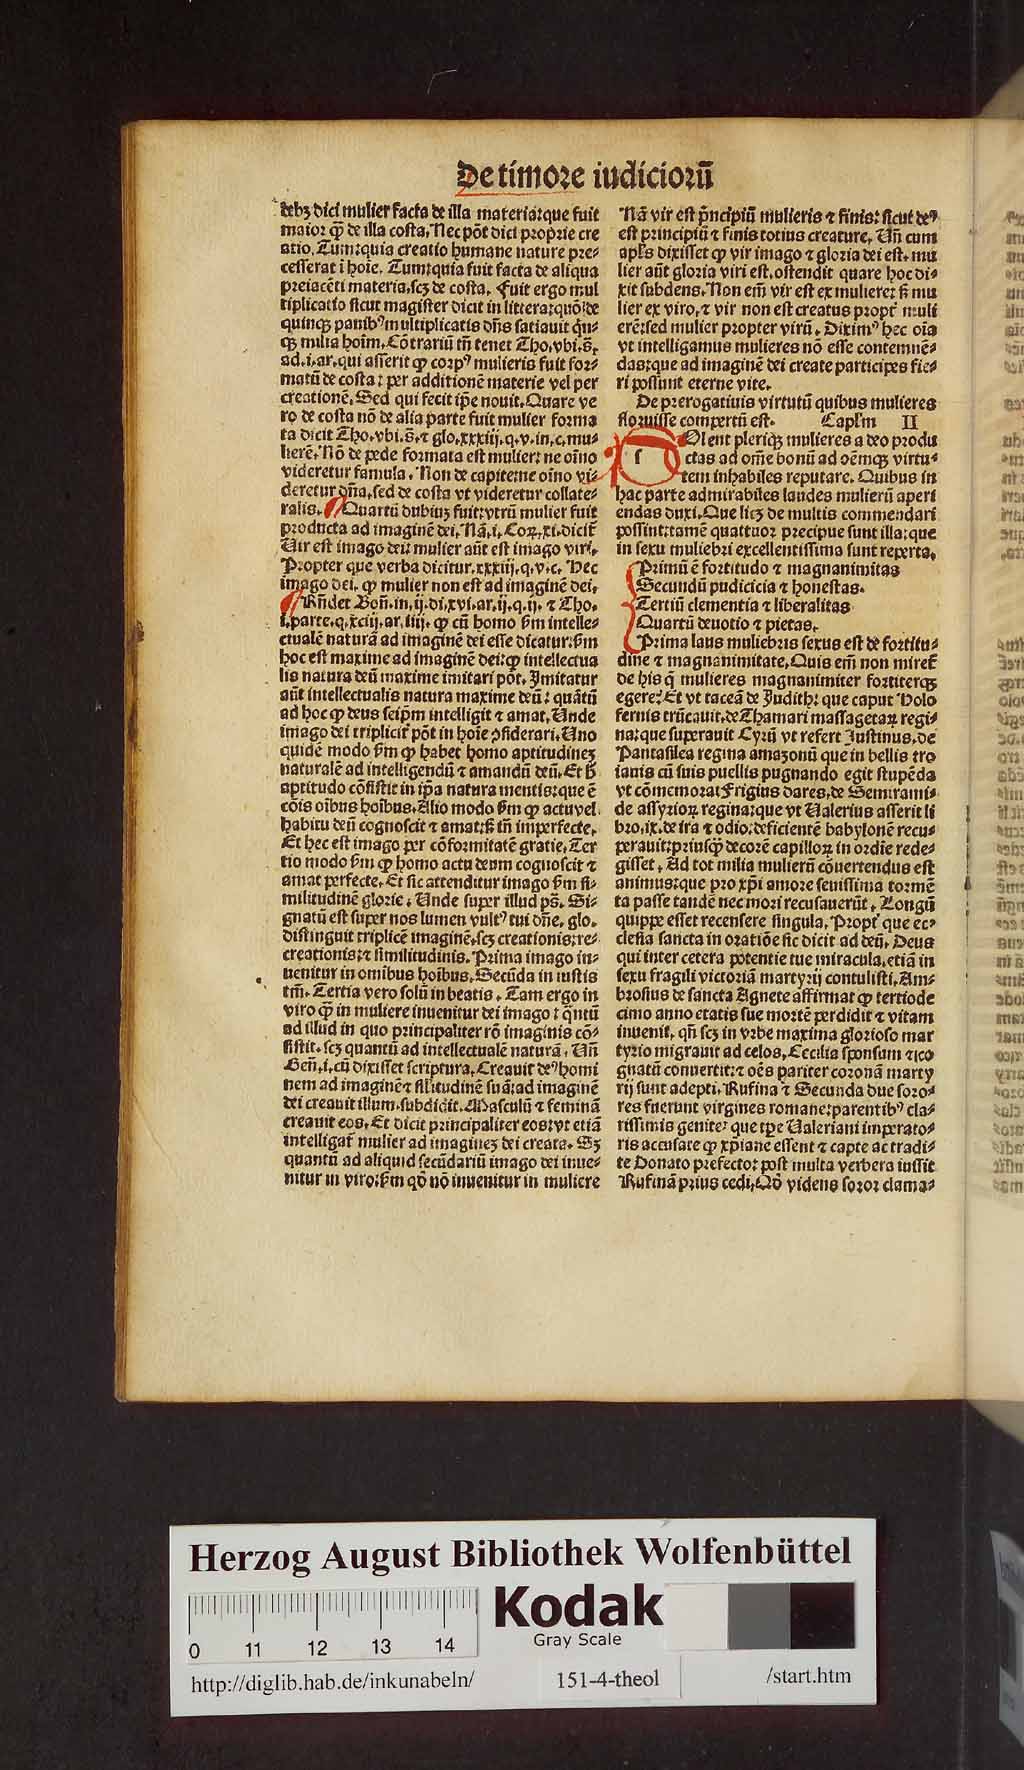 De timore iudicioꝝ
debꝫ dici mulier facta de illa materia: que fuit
maior ꝙ̃ de illa costa. Nec põt dici proprie cre
atio. Tum: quia creatio humane nature pre⸗
cesserat ĩ hoĩe. Tum: quia fuit facta de aliqua
preiacẽti materia, scꝫ de costa. Fuit ergo mul
tiplicatio sicut magister dicit in littera: quõ: de
quinqꝫ panibꝰ multiplicatis dñs satiauit q̃n⸗
qꝫ milia hoĩm. Cõtrariũ tñ tenet Tho. vbi. s̃.
ad. i. ar. qui asserit ꝙ corpꝰ mulieris fuit for⸗
matũ de costa: per additionẽ materie vel per
creationẽ. Sed qui fecit ip̃e nouit. Quare ve
ro de costa nõ de alia parte fuit mulier forma
ta dicit Tho. vbi. s̃. ⁊ glo. xxxiij. q. v. in. c. mu⸗
lierẽ. Nõ de pede formata est mulier: ne oĩno
videretur famula. Non de capite: ne oĩno vi⸗
deretur dña. sed de costa vt videretur collate⸗
ralis. Quartũ dubiuꝫ fuit: vtrũ mulier fuit
producta ad imaginẽ dei. Nã. i. Coꝝ. xi. dicit̃
Uir est imago dei: mulier aũt est imago viri.
Propter que verba dicitur. xxxiij. q. v. c. Hec
imago dei. ꝙ mulier non est ad imaginẽ dei.
Rñdet Boñ. in. ij. di. xvi. ar. ij. q. ij. ⁊ Tho.
i. parte. q. xciij. ar. iiij. ꝙ cũ homo s̃m intelle⸗
ctualẽ naturã ad imaginẽ dei esse dicatur: s̃m
hoc est maxime ad imaginẽ dei: ꝙ intellectua
lis natura deũ maxime imitari põt. Imitatur
aũt intellectualis natura maxime deũ: quãtũ
ad hoc ꝙ deus seip̃m intelligit ⁊ amat. Unde
imago dei triplicit̃ põt in hoĩe ꝯsiderari. Uno
quidẽ modo s̃m ꝙ habet homo aptitudineꝫ
naturalẽ ad intelligendũ ⁊ amandũ deũ. Et h̃
aptitudo cõsistit in ip̃a natura mentis: que ẽ
cõis oĩbus hoĩbus. Alio modo s̃m ꝙ actu vel
habitu deũ cognoscit ⁊ amat: s̃ tñ imperfecte.
Et hec est imago per cõformitatẽ gratie. Ter
tio modo s̃m ꝙ homo actu deum cognoscit ⁊
amat perfecte. Et sic attenditur imago s̃m si⸗
militudinẽ glorie. Unde super illud ps̃. Si⸗
gnatũ est super nos lumen vultꝰ tui dñe. glo.
distinguit triplicẽ imaginẽ. scꝫ creationis: re⸗
creationis: ⁊ similitudinis. Prima imago in⸗
uenitur in omnibus hoĩbus. Secũda in iustis
tm̃. Tertia vero solũ in beatis. Tam ergo in
viro ꝙ̃ in muliere inuenitur dei imago: q̃ntũ
ad illud in quo principaliter rõ imaginis cõ⸗
sistit. scꝫ quantũ ad intellectualẽ naturã. Uñ
Geñ. i. cũ dixisset scriptura. Creauit deꝰ homi
nem ad imaginẽ ⁊ sil̃itudinẽ suã: ad imaginẽ
dei creauit illum. subdidit. Masculũ ⁊ feminã
creauit eos. Et dicit principaliter eos: vt etiã
intelligat̃ mulier ad imagineꝫ dei creata. Sꝫ
quantũ ad aliquid secũdariũ imago dei inue⸗
nitur in viro: s̃m qõ nõ inuenitur in muliere
Nã vir est p̃ncipiũ mulieris ⁊ finis: sicut deꝰ
est principiũ ⁊ finis totius creature. Uñ cum
apl̃s dixisset ꝙ vir imago ⁊ gloria dei est. mu
lier aũt gloria viri est. ostendit quare hoc di⸗
xit subdens. Non em̃ vir est ex muliere: s̃ mu
lier ex viro. ⁊ vir non est creatus propt̃ muli
erẽ: sed mulier propter virũ. Diximꝰ hec oĩa
vt intelligamus mulieres nõ esse contemnẽ⸗
das: que ad imaginẽ dei create participes fie⸗
ri possunt eterne vite.
De prerogatiuis virtutũ quibus mulieres
floruisse compertũ est. Capl̃m II
SOlent pleriqꝫ mulieres a deo produ
ctas ad om̃e bonũ ad oẽmqꝫ virtu⸗
tem inhabiles reputare. Quibus in
hac parte admirabiles laudes mulierũ aperi
endas duxi. Que licꝫ de multis commendari
possint: tamẽ quattuor precipue sunt illa: que
in sexu muliebri excellentissima sunt reperta.
Primũ ẽ fortitudo ⁊ magnanimitas
Secundũ pudicicia ⁊ honestas.
Tertiũ clementia ⁊ liberalitas
Quartũ deuotio ⁊ pietas.
Prima laus muliebris sexus est de fortitu⸗
dine ⁊ magnanimitate. Quis em̃ non miret̃
de his q̃ mulieres magnanimiter fortiterqꝫ
egere? Et vt taceã de Judith: que caput Holo
fernis trũcauit. de Thamari massagetaꝝ regi⸗
na: que superauit Cyrũ vt refert Justinus. de
Pantasilea regina amazonũ que in bellis tro
ianis cũ suis puellis pugnando egit stupẽda
vt cõmemorat Frigius dares. de Semirami⸗
de assyrioꝝ regina: que vt Ualerius asserit li
bro. ix. de ira ⁊ odio: deficientẽ babylonẽ recu⸗
perauit: priusꝙ̃ decorẽ capilloꝝ in ordĩe rede⸗
gisset. Ad tot milia mulierũ cõuertendus est
animus: que pro xp̃i amore seuissima tormẽ
ta passe tandẽ nec mori recusauerũt. Longũ
quippe esset recensere singula. Propt̃ que ec⸗
clesia sancta in oratiõe sic dicit ad deũ. Deus
qui inter cetera potentie tue miracula. etiã in
sexu fragili victoriã martyrij contulisti. Am⸗
brosius de sancta Agnete affirmat ꝙ tertiode
cimo anno etatis sue mortẽ perdidit ⁊ vitam
inuenit. qñ scꝫ in vrbe maxima glorioso mar
tyrio migrauit ad celos. Cecilia sponsum ⁊ co
gnatũ conuertit: ⁊ oẽs pariter coronã marty
rij sunt adepti. Rufina ⁊ Secunda due soro⸗
res fuerunt virgines romane: parentibꝰ cla⸗
rissimis genite: que tp̃e Ualeriani imperato⸗
ris accusate ꝙ xp̃iane essent ⁊ capte ac tradi⸗
te Donato prefecto: post multa verbera iussit
Rufinã prius cedi. Qõ videns soror clama⸗
Herzog August Bibliothek Wolfenbüttel
Kodak
Gray Scale
0 11 12 13 14
http://diglib.hab.de/inkunabeln/ 151-4-theol /start.htm